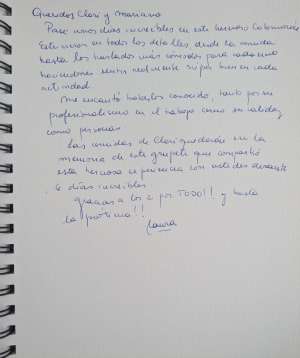 Queridos Clari y Mariano
Pase unos días increíbles en este hermoso Catamarán
Estuvieron en todos los detalles, desde la comida
hasta los traslados más cómodos para cada uno
haciendonos sentir realmente super bien en cada
actividad
Me encantó haberlos conocido, tanto por su
profesionalismo en el trabajo como su calidez
como personas
Las comidas de Clari quedarán en la
memoria de este grupete que compartió
esta hermosa experiencia con ustedes durante
6 días increíbles
gracias a los 2 por TODO!! y hasta
la próxima!!
Laura